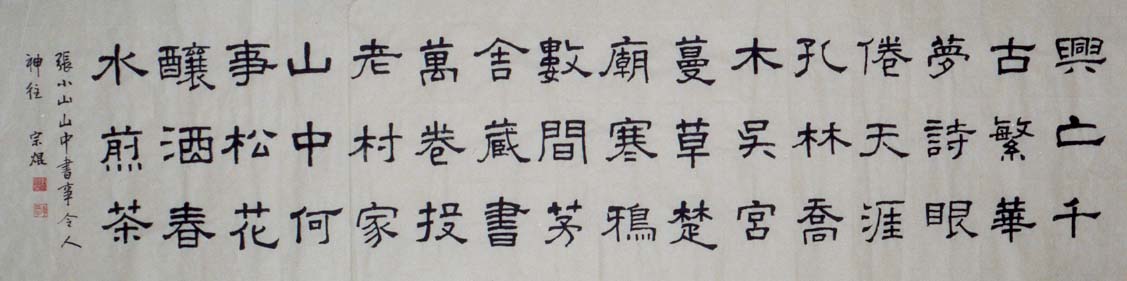 興亡千
古繁華
夢詩眼
倦天涯
孔林喬
木吳宮
蔓草楚
廟寒鴉
數間茅
舍藏書
萬卷投
老村家
山中何
事松花
釀酒春
水煎茶
張小山山中書事令人
神往 宗焜